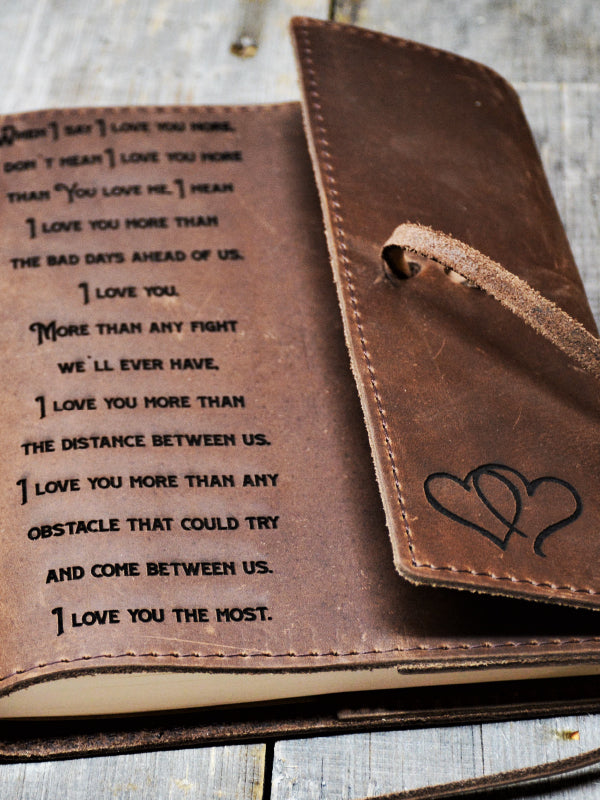 When I say I love you more,
don't mean I love you more
than You love me. I mean
I love you more than
the bad days ahead of us.
I love you.
More than any fight
we'll ever have,
I love you more than
the distance between us.
I love you more than any
obstacle that could try
and come between us.
I love you the most.